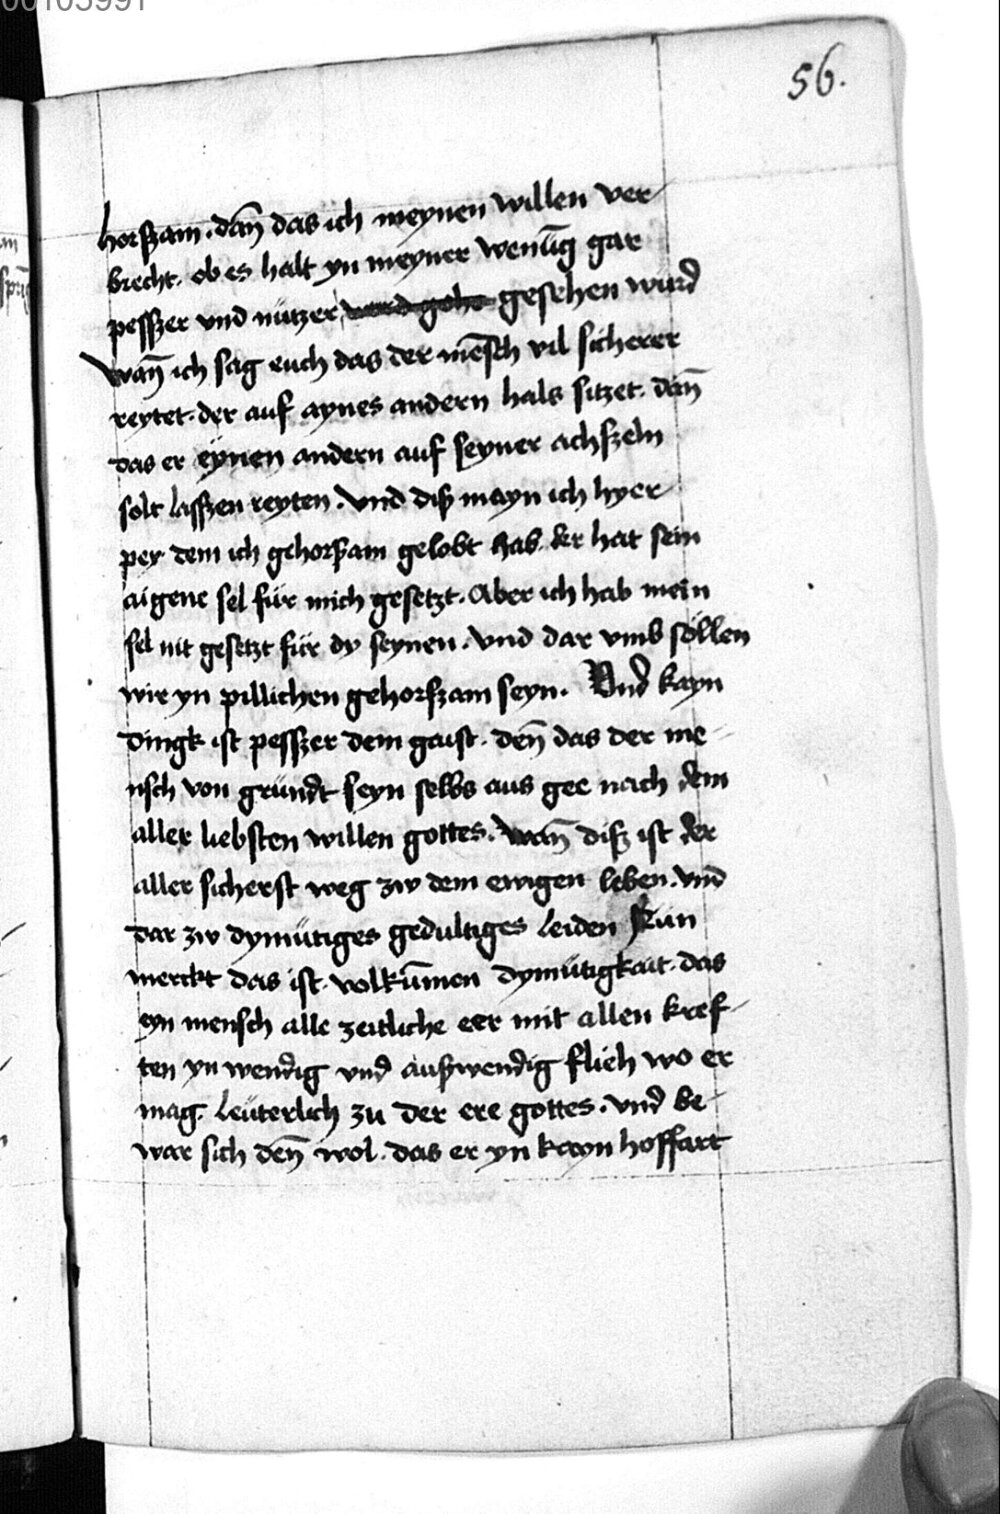 00103991
56.
horszam. dan̄ das ich meynen willen ver
brecht. ob es halt yn meyner wenūg gar
pesszer vnd nützer gesehen würd
Wan̄ ich sag euch das der mēsch vil sicherer
reytet. der auf aynes andern hals sitzet. dan̄
das er eynen andern auf seyner achszeln
solt lasszen reyten. Vnd disz mayn ich hyer
pey dem ich gehorszam gelobt hab. der hat sein
aigene sel für mich gesetzt. Aber ich hab mein
sel nit gesetzt für dy seynen. Vnd dar vmb söllen
wir yn pillichen gehorszam seyn. Vnd kayn
dingk ist pesszer dem gaist. den̄ das der me
nsch von gründt seyn selbs aus gee nach dem
aller liebsten willen gottes. Wan̄ disz ist der
aller sicherst weg zw dem ewigen leben. vnd
dar zw dymütiges gedultiges leiden Nun
merckt das ist. volkūmen dymütigkait. das
eyn mensch alle zeitliche eer mit allen kref
ten yn wendig vnd auszwendig flieh wo er
mag. leüterlich zu der ere gottes. vnd be
war sich den̄ wol. das er yn kayn hoffart